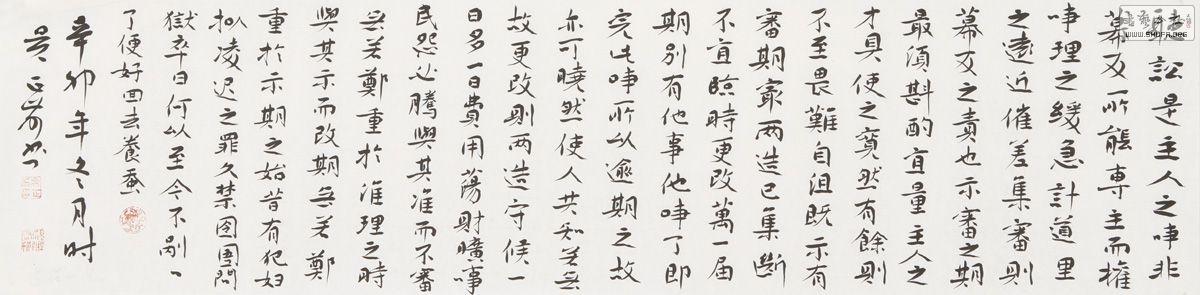 聽訟是主人之事非
幕友所能專主而權
事理之緩急計道里
之遠近催差集審則
幕友之責也示審之期
最須斟酌宜量主人之
才具使之寬然有餘則
不至畏難自沮既示有
審期最两造已集斷
不宜臨時更改萬一届
期别有他事他事了即
完此事所以逾期之故
亦可曉然使人共知若無
故更改則两造守候一
日多一日費用蕩財曠事
民怨必騰與其准而不審
無若鄭重於准理之時
與其示而改期無若鄭
重於示期之始昔有犯妇
拟凌迟之罪久禁囹圄問
獄卒曰何以至今不剮丶
了便好回去養蚕
辛卯年冬月时
WWW.SHUFA.ORG